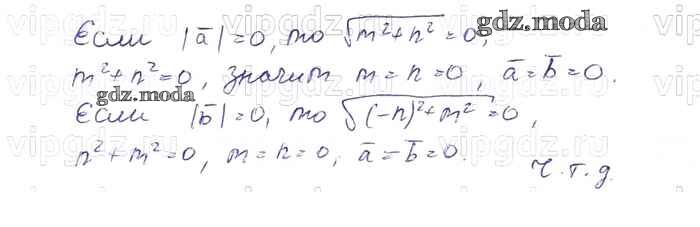 Если |a̅|=0, то √(m²+n²)=0,
m²+n²=0, значит m=n=0, a̅=b̅=0.
Если |b̅|=0, то √((-n)²+m²)=0,
n²+m²=0, m=n=0, a̅=b̅=0.
ч.т.д.
gdz.moda
gdz.moda
vipgdz.ru